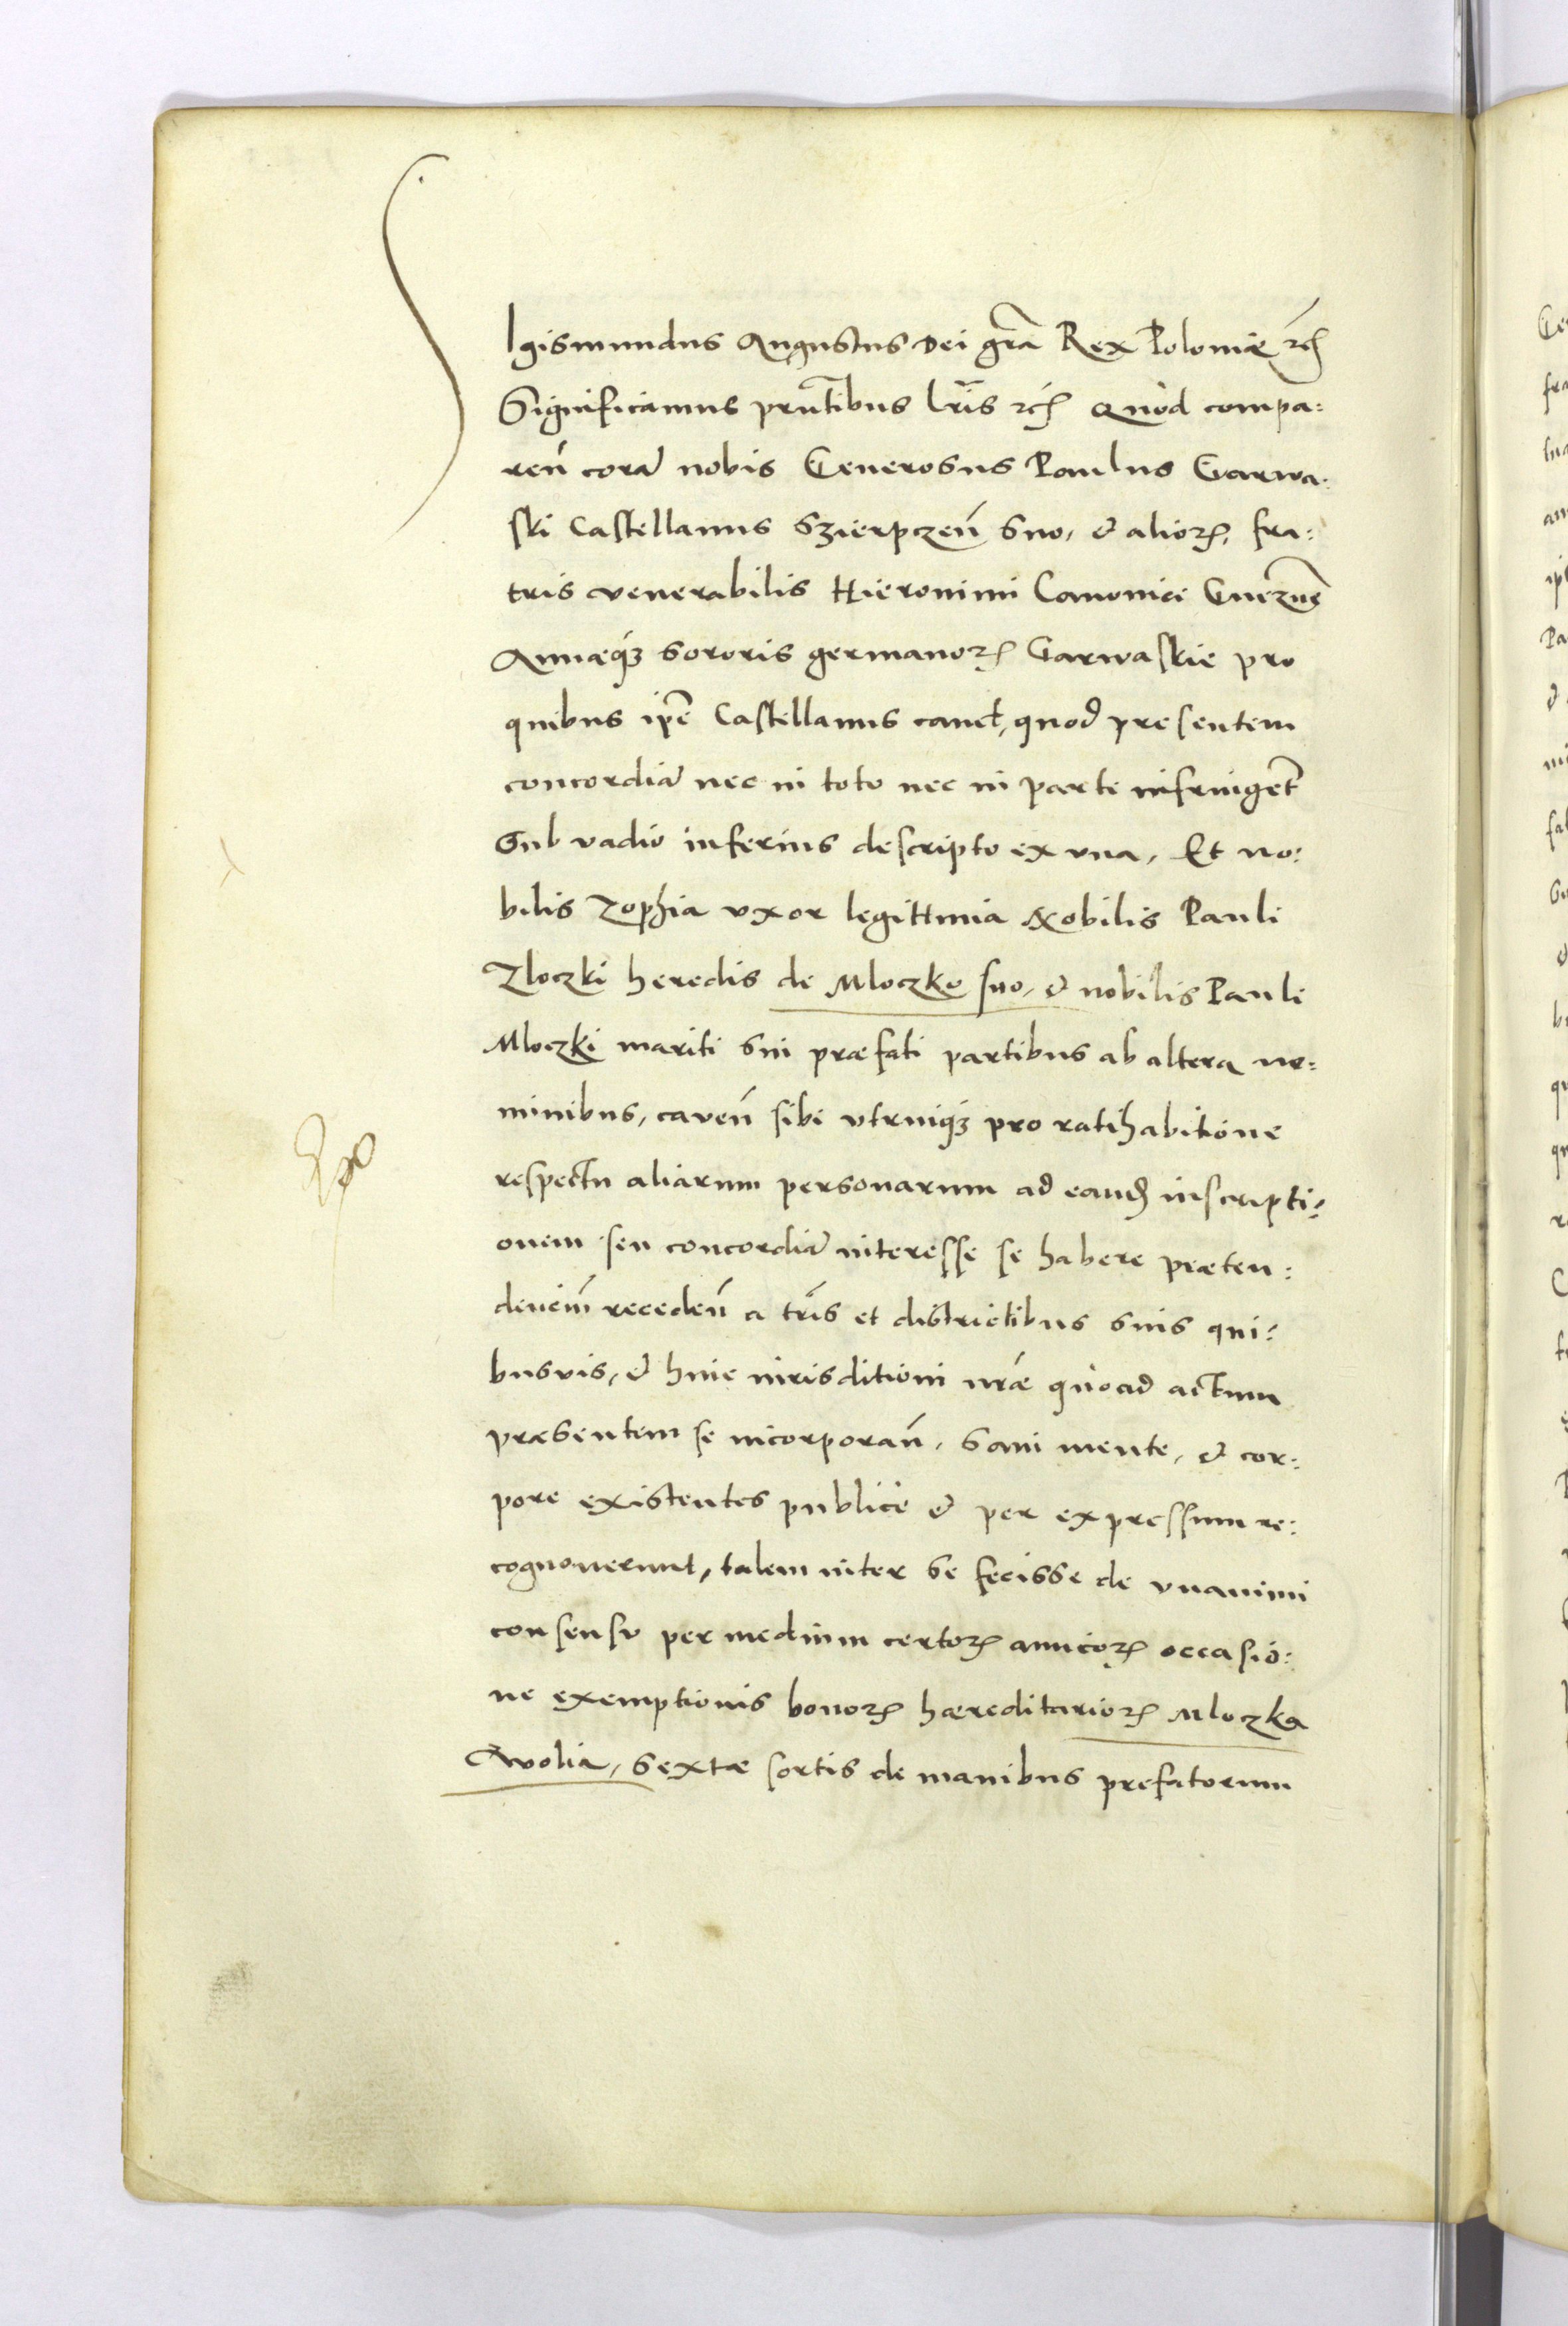 Sigismundus Augustus Dei gr̃a Rex Poloniæ ꝛc̃
Significamus pr̃ntibus lr̃is ꝛc̃ Quòd compa:
reñ corã nobis Generosus Paulus Garwa:
ski Castellanus Szierpczeñ suo, & alioꝝ, fra:
tris venerabilis Hieronimi Canonici Gnezneñ
Annæqꝫ sororis germanoꝝ Garwaskie pro
quibus ip̃e Castellanus cauet, quod presentem
concordiã nec in toto nec in parte infringet
Sub vadio inferius descripto ex vna, Et no:
bilis Zophia vxor legittima Nobilis Pauli
Zloczki heredis de Mloczko suo, & nobilis Pauli
Mloczki mariti sui præfati partibus ab altera no:
minibus, caveñ sibi vtrinqꝫ pro ratihabitione
respectu aliarum personarum ad eandẽ inscripti:
onem seu concordiã interesse se habere præten:
denciũ recedeñ a tr̃is et districtibus suis qui:
busvis, & huic iurisditioni nr̃æ quoad actum
præsentem se incorporañ, sani mente, & cor:
pore existentes publice & per expressum re:
cognouerunt, talem inter se fecisse de vnanimi
consensu per medium certoꝝ amicoꝝ occasio:
ne exemptionis bonoꝝ hæreditarioꝝ Mloczka
Wolia, sextæ sortis de manibus prefatorum